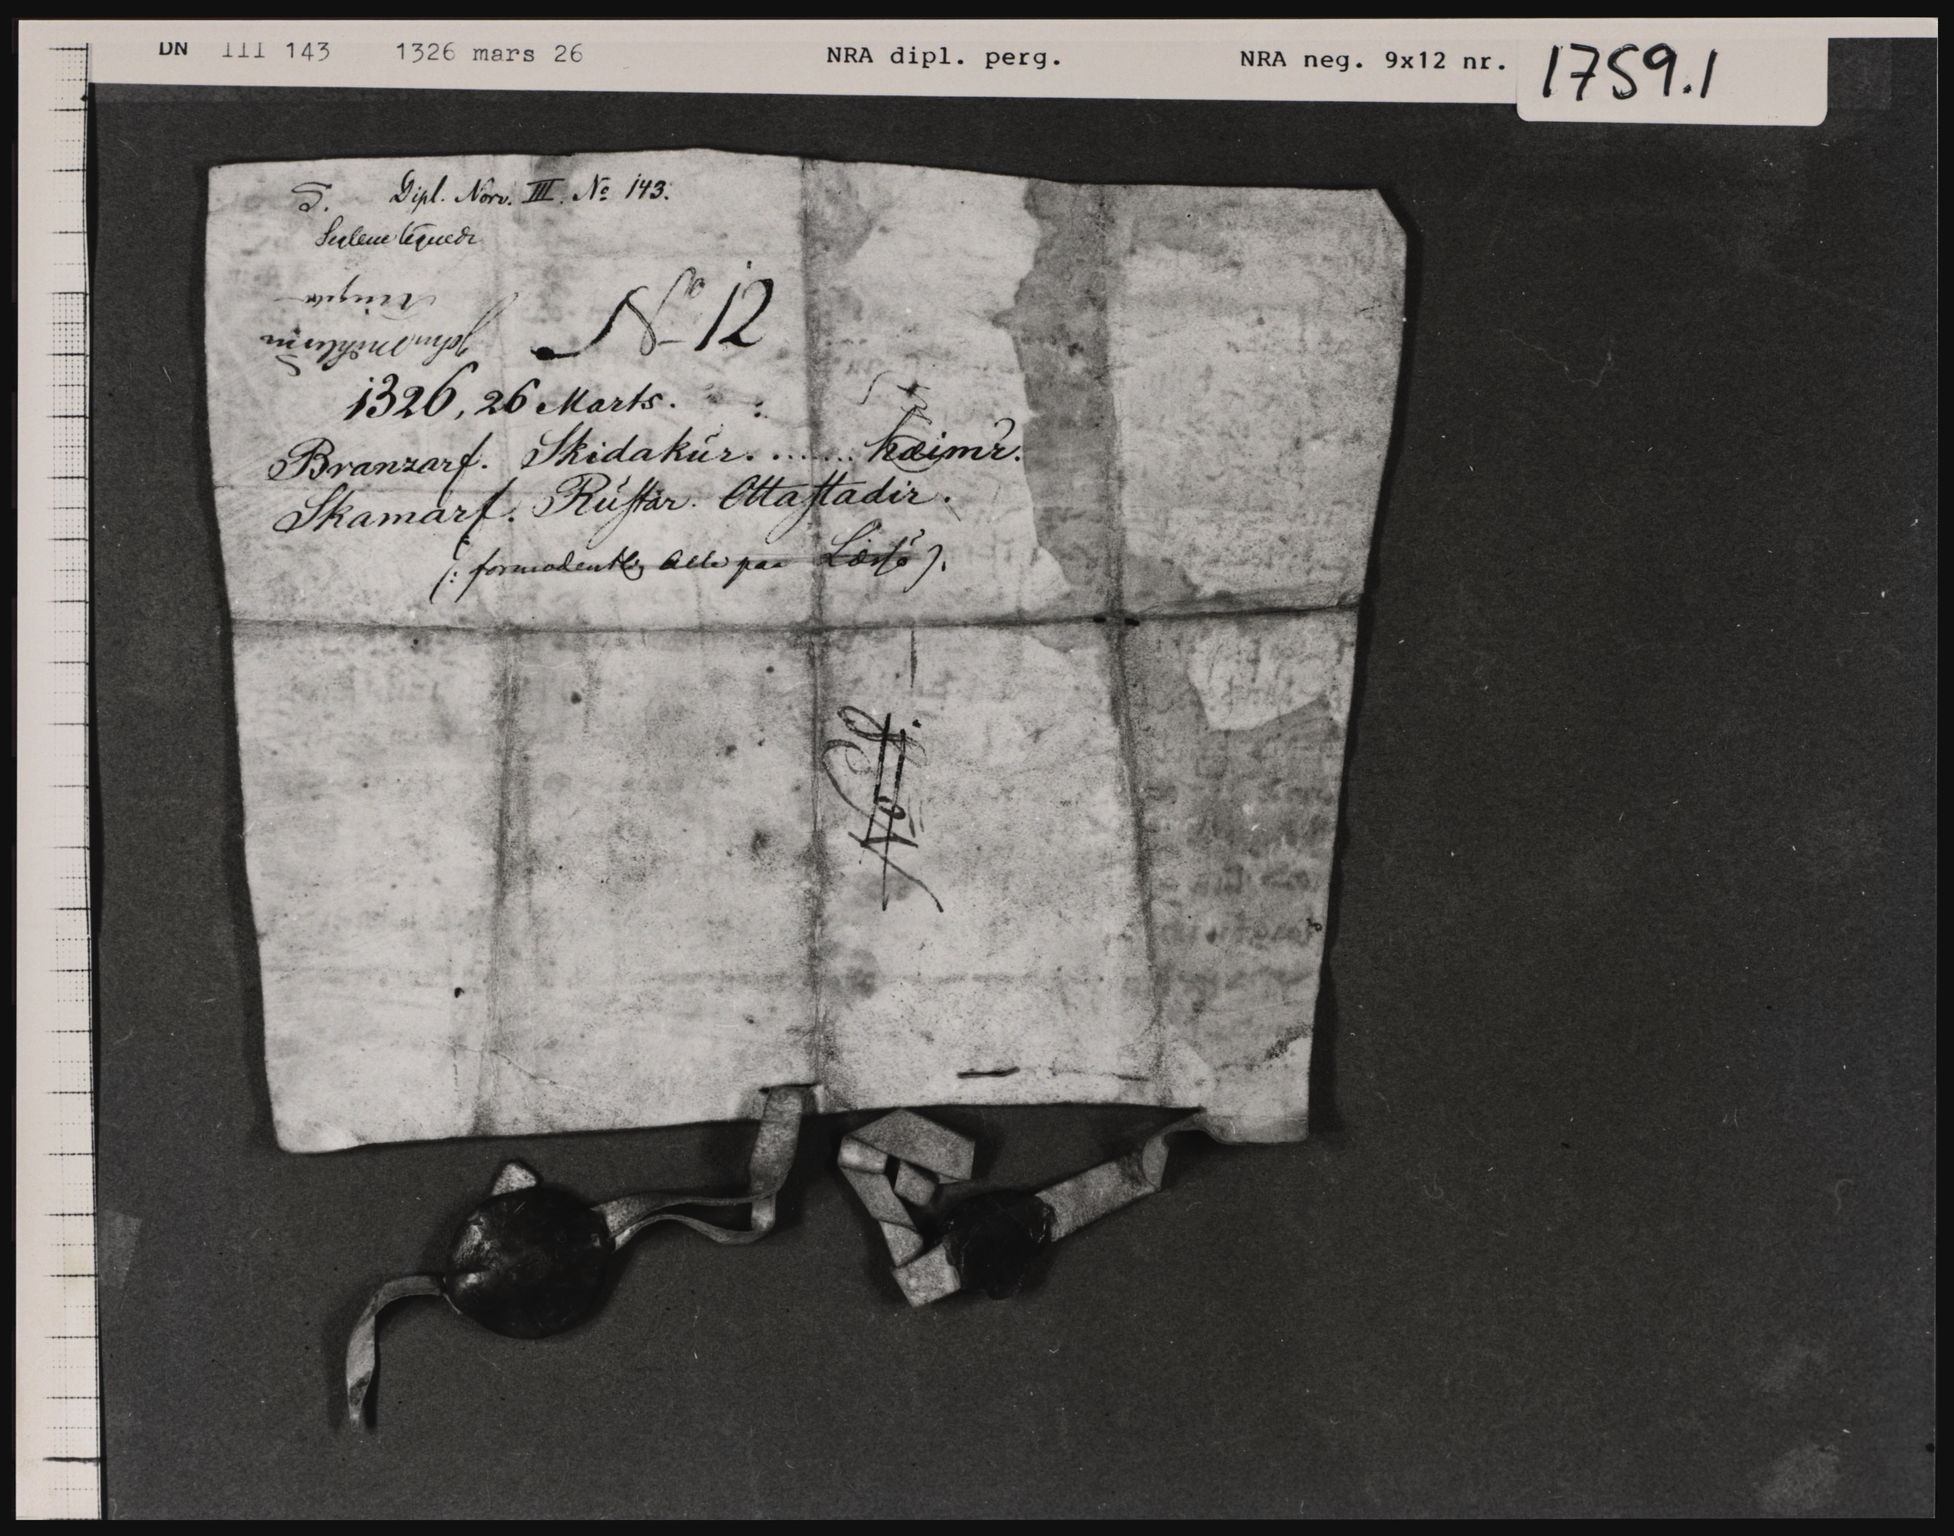 DN III 143 1326 mars 26 NRA dipl. perg. NRA neg. 9x12 nr. 1759.1
S. Dipl. Norv. III. No 143.
No 12
1326, 26 Marts.
Branzarf. Skidakúr. ...... hæimr.
Skamarf. Rústar. Ottastadir.
(: formodentlig alle paa Lesjø).
No